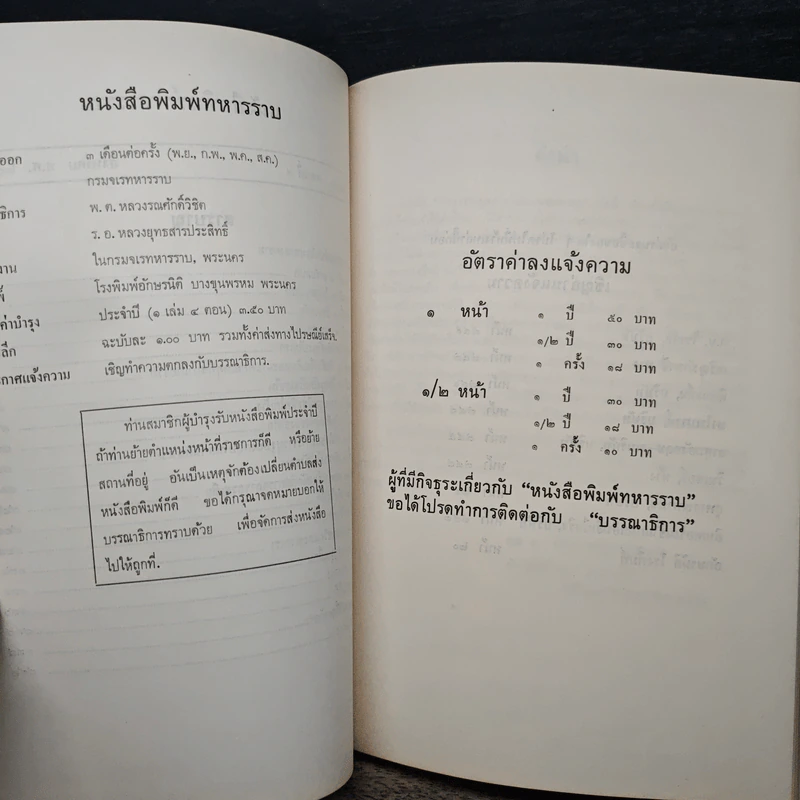 หนังสือพิมพ์ทหารราบ
ออก ๓ เดือนต่อครั้ง (พ.ย., ก.พ., พ.ค., ส.ค.)
กรมจเรทหารราบ
ธิการ พ. ต. หลวงรณศักดิ์วิชิต
ร. อ. หลวงยุทธสารประสิทธิ์
งาน ในกรมจเรทหารราบ, พระนคร
โรงพิมพ์อักษรนิติ บางขุนพรหม พระนคร
ค่าบำรุง ประจำปี (๑ เล่ม ๔ ตอน) ๓.๕๐ บาท
ลึก ฉะบับละ ๑.๐๐ บาท รวมทั้งค่าส่งทางไปรษณีย์เสร็จ.
กาศแจ้งความ เชิญทำความตกลงกับบรรณาธิการ.
ท่านสมาชิกผู้บำรุงรับหนังสือพิมพ์ประจำปี
ถ้าท่านย้ายตำแหน่งหน้าที่ราชการก็ดี หรือย้าย
สถานที่อยู่ อันเป็นเหตุจักต้องเปลี่ยนตำบลส่ง
หนังสือพิมพ์ก็ดี ขอได้กรุณาจดหมายบอกให้
บรรณาธิการทราบด้วย เพื่อจัดการส่งหนังสือ
ไปให้ถูกที่.
อัตราค่าลงแจ้งความ
๑ หน้า ๑ ปี ๕๐ บาท
๑/๒ ปี ๓๐ บาท
๑ ครั้ง ๑๘ บาท
๑/๒ หน้า ๑ ปี ๓๐ บาท
๑/๒ ปี ๑๘ บาท
๑ ครั้ง ๑๐ บาท
ผู้ที่มีกิจธุระเกี่ยวกับ “หนังสือพิมพ์ทหารราบ”
ขอได้โปรดทำการติดต่อกับ “บรรณาธิการ”